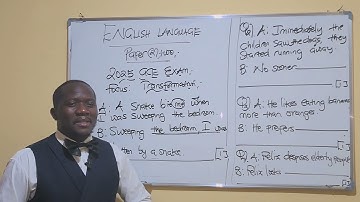 ENGLISH LANGUAGE
Paper (2) two
2025 GCE Exam
Focus: Transformation
A: A Snake bit me when
I was Sweeping the bedroom
B: Sweeping the bedroom, I was
bitten by a snake. [1]
Q A: Immediately the
Children Saw the dogs, they
Started running away.
B: No sooner
[1]
Q A: He likes eating bananas
more than oranges.
B: He prefers
[1]
Q A: Felix despises elderly people
B: Felix looks